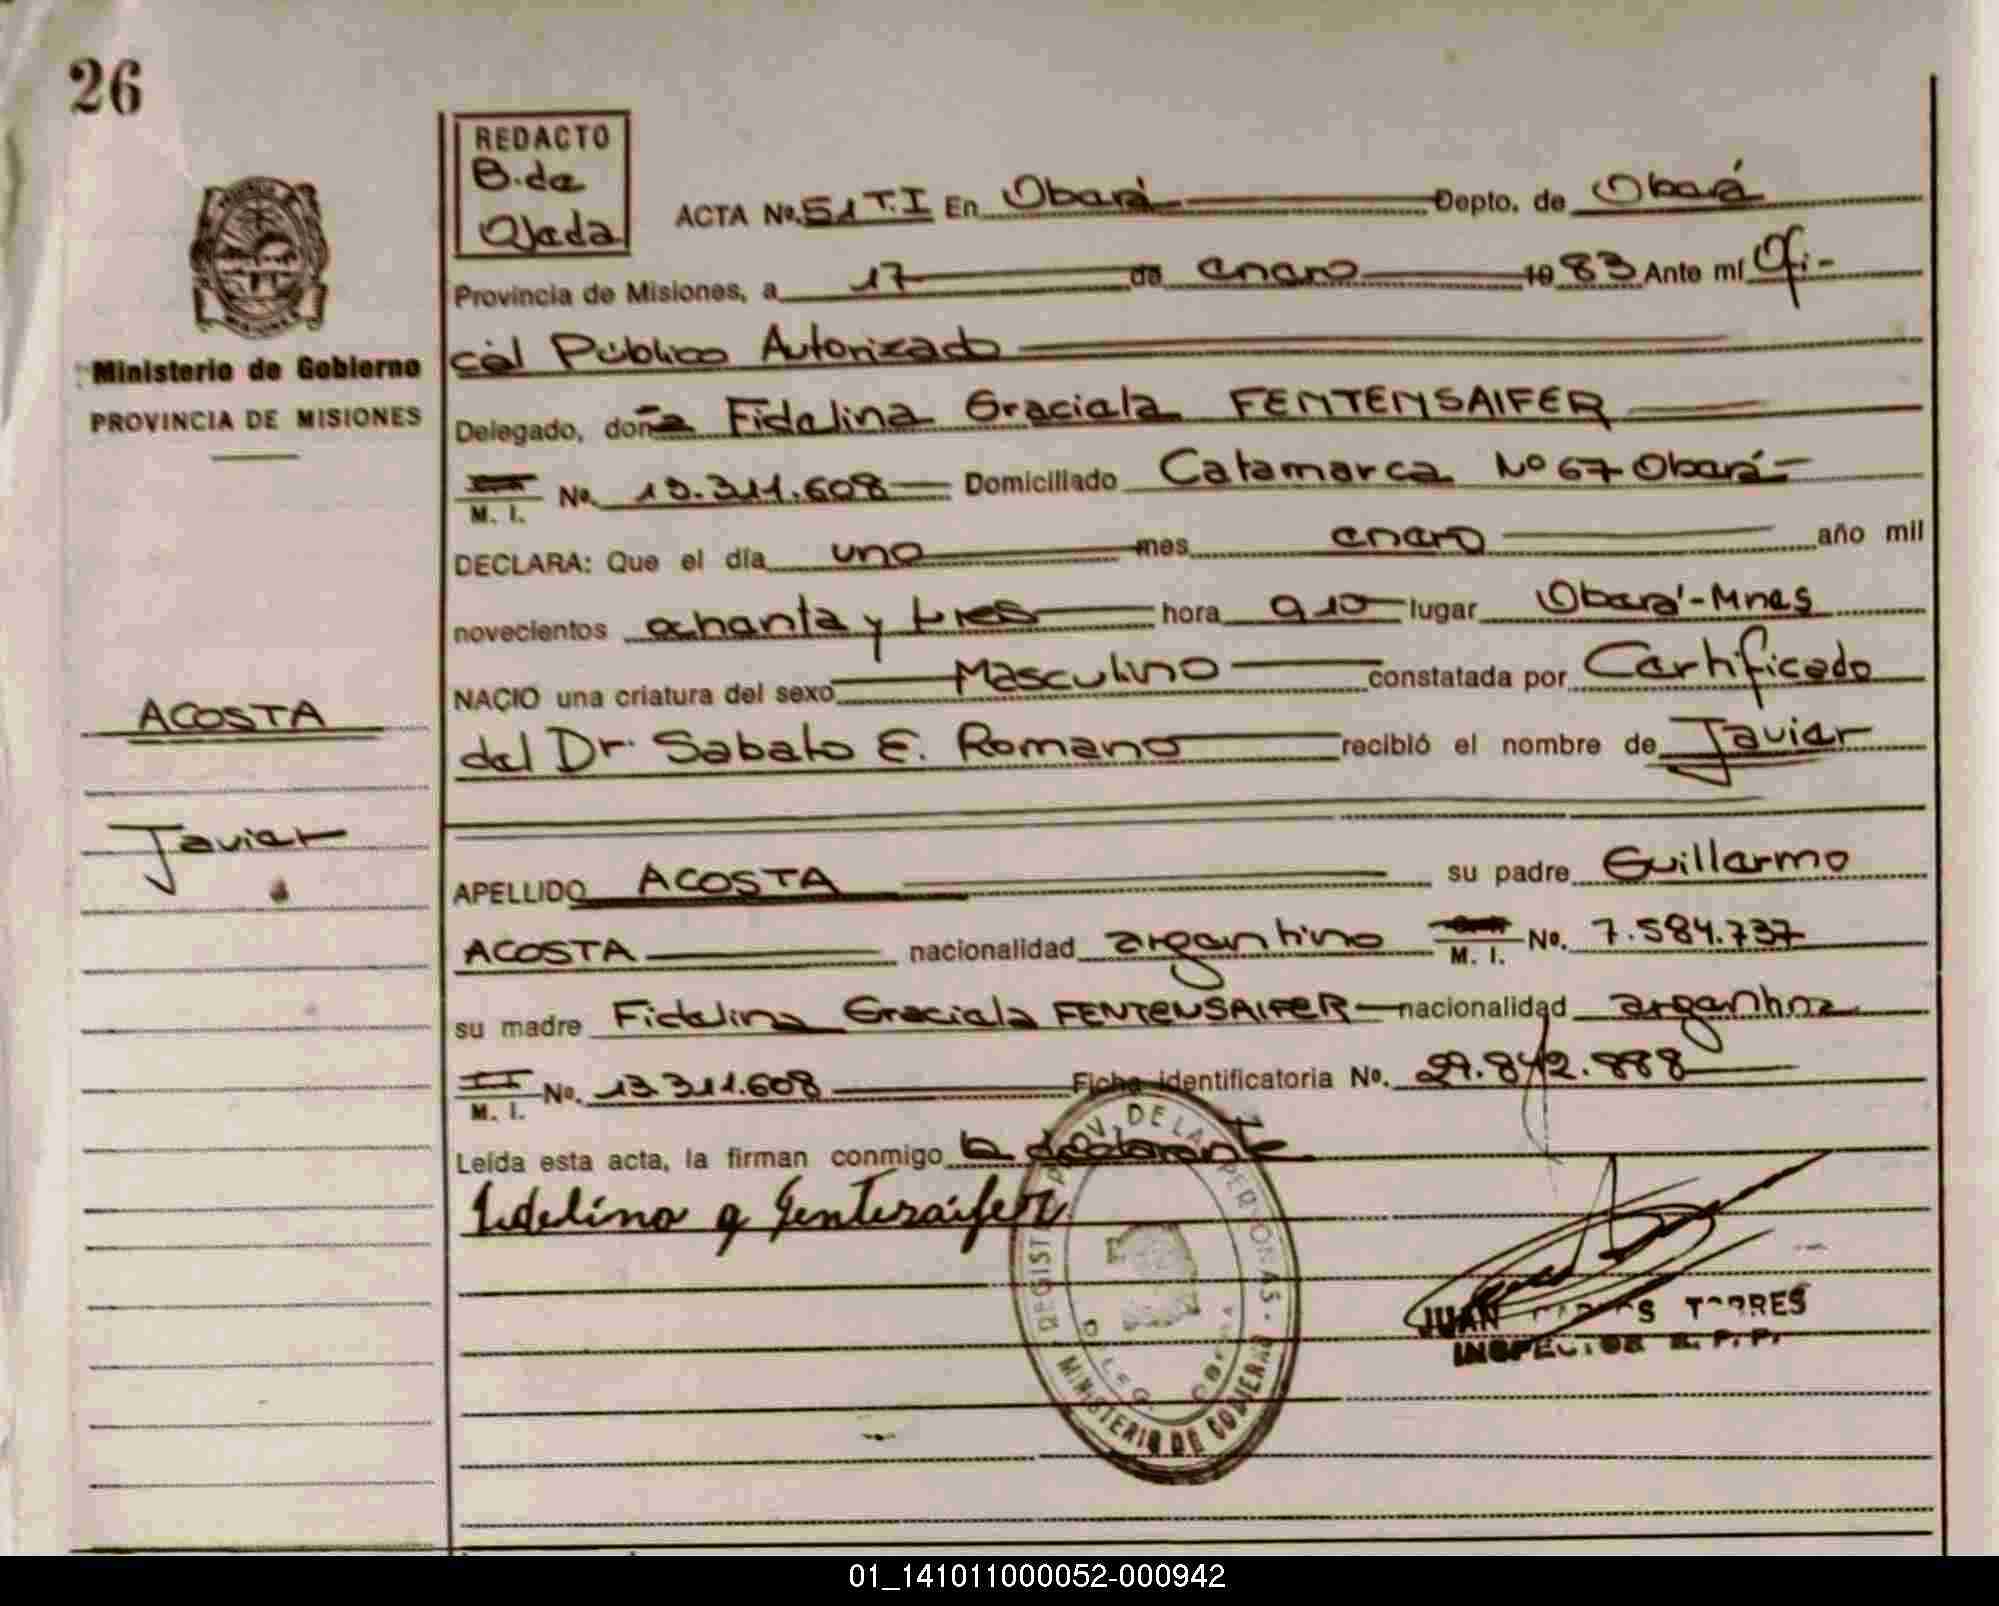 26
REDACTO
B. de
Ojeda
ACTA No. 51 T.I En Oberá Depto. de Oberá
Provincia de Misiones, a 17 de enero 1983 Ante mí Ofi-
cial Público Autorizado
Ministerio de Gobierno
PROVINCIA DE MISIONES
Delegado, doña Fidelina Graciela FENTENSAIFER
M. I. No. 13.311.608 Domiciliado Catamarca Nº 67 Oberá-
DECLARA: Que el día uno mes enero año mil
novecientos ochenta y tres hora 9 10 lugar Oberá-Mnes
NACIO una criatura del sexo Masculino constatada por Certificado
del Dr. Sabato E. Romano recibió el nombre de Javier
ACOSTA
Javier
APELLIDO ACOSTA su padre Guillermo
ACOSTA nacionalidad argentino M. I. No. 7.584.737
su madre Fidelina Graciela FENTENSAIFER nacionalidad argentina
M. I. No. 13.311.608 Ficha identificatoria No. 29.842.888
Leída esta acta, la firman conmigo la declarante
Fidelina g Fentensaifer
REGIST PROV. DE LAS PERSONAS
MINISTERIO DE GOBIERNO
JUAN CARLOS TORRES
INSPECTOR R. P. P.
01_141011000052-000942